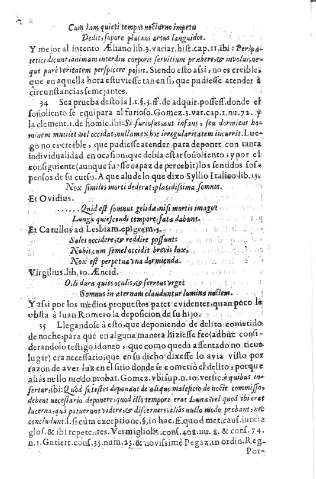 Cum iam quieti tempus nocturno impetu
Dedit, sopore placans artus languidos.
Y mejor al intento Æliano lib.3. variar. hist. cap. 11. ibi: Peripa-
tetici dicunt; animam interdiu corporis servitium præbere, & involui, ne-
que puré veritatem perspicere posse. Siendo esto assi, no es creible,
que en aquella hora estuviesse tan en si, que pudiesse atender à
circunstancias semejantes.
34 Sea prueba desto la l.1. §.3. ff. de adquir. possess. donde el
soñoliento se equipara al furioso. Gomez 3. var. cap. 1. nu. 72. y
la clement. 1. de homic. ibi: Si furiosus aut infans, seu dormiens ho-
minem mutilet vel occidat, nullam ex hoc irregularitatem incurrit. Lue-
go no es creible, que pudiesse atender para deponer con tanta
individualidad en ocasion, que debia estar soñoliento, y por el
consiguiente (aunque fuesse capaz de percebir) los sentidos sus-
pensos de su curso. A que aludelo que dixo Syllio Italico lib. 15.
Nox similes morti dederat, placidissima somnos.
Et Ovidius.
...... Quid est somnus gelidæ nisi mortis imago?
Longa quiescendi tempora, fata dabunt.
Et Catullus ad Lesbiam, epigram. 5.
Soles occidere, & reddire possunt
Nobis cum semel occidit brevis lux,
Nox est perpetua una dormienda.
Virgilius lib. 10. Æneid.
Olli dura quies oculis, & ferreus urget
Somnus in æternam clauduntur lumina noctem.
Y assi por los medios propuestos parece evidente, quan poco le
obsta à Juan Romero la deposicion de su hijo.
35 Llegandose à esto, que deponiendo de delito cometido
de noche para que en alguna manera hiziesse fee (adhuc consi-
derandolo testigo idoneo, que como queda assentado no tiene
lugar) era necessario, que en su dicho dixesse lo avia visto por
razon de aver luz en el sitio donde se cometiò el delito; porque
alias nello medio probat. Gomez. ubi sup. n. 10. versic. quibus in-
fertur, ibi: Quod si testes deponant de aliquo maleficio de nocte commisso,
debent necessario deponere, quod illo tempore erat Luna, vel quod ibi erat
lucerna, qua poterant videre, & discernere, aliàs nullo modo probant, nec
concludunt. l. si cum exceptione, §. in hac. ff. quod met. caus. iuncta
glos. & ibi repetentes. Vermigliolis, cons. 402. nu. 8. & cons. 74.
n. 1. Gutierr. cons. 35. num. 23. & novissimè Pegaz, in ordin. Reg-
Por-